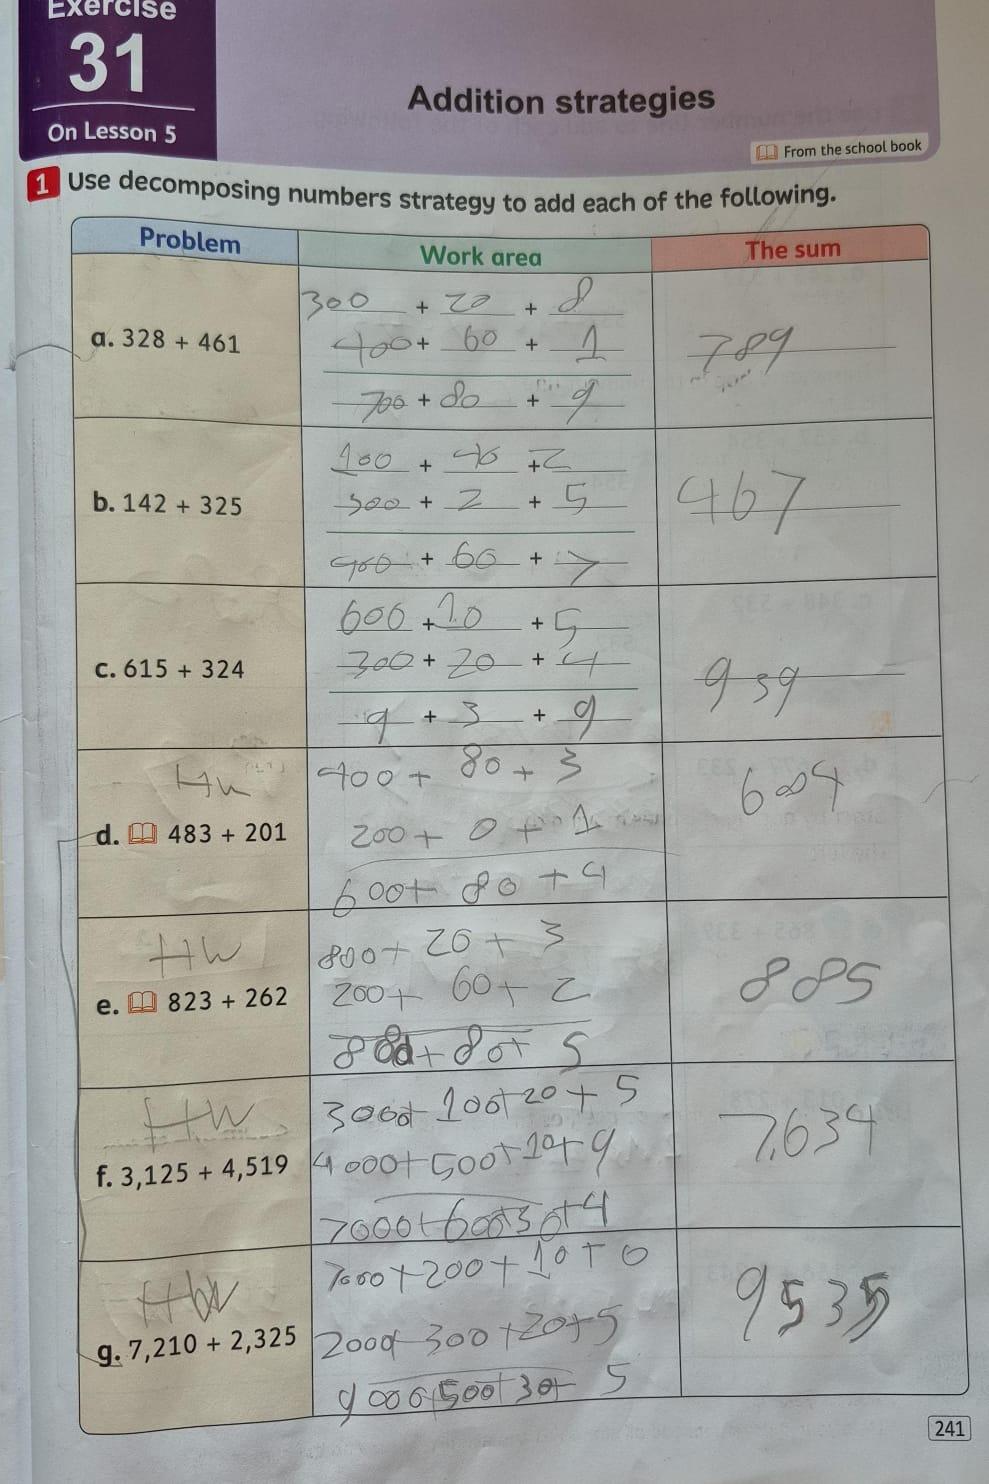 Exercise
31
On Lesson 5
Addition strategies
From the school book
1 Use decomposing numbers strategy to add each of the following.
Problem Work area The sum
300 + 20 + 8
a. 328 + 461 400 + 60 + 1 789
700 + 80 + 9
100 + 40 + 2
b. 142 + 325 300 + 2 + 5 467
400 + 60 + 7
600 + 10 + 5
c. 615 + 324 300 + 20 + 4 939
9 + 3 + 9
HW 400 + 80 + 3
d. 483 + 201 200 + 0 + 1 684
600 + 80 + 4
HW 800 + 20 + 3
e. 823 + 262 200 + 60 + 2 885
880 + 80 + 5
HW 3000 + 100 + 20 + 5
f. 3,125 + 4,519 4000 + 500 + 10 + 9 7,634
7000 + 600 + 30 + 4
HW 7000 + 200 + 10 + 0
g. 7,210 + 2,325 2000 + 300 + 20 + 5 9535
9000 + 500 + 30 + 5
241